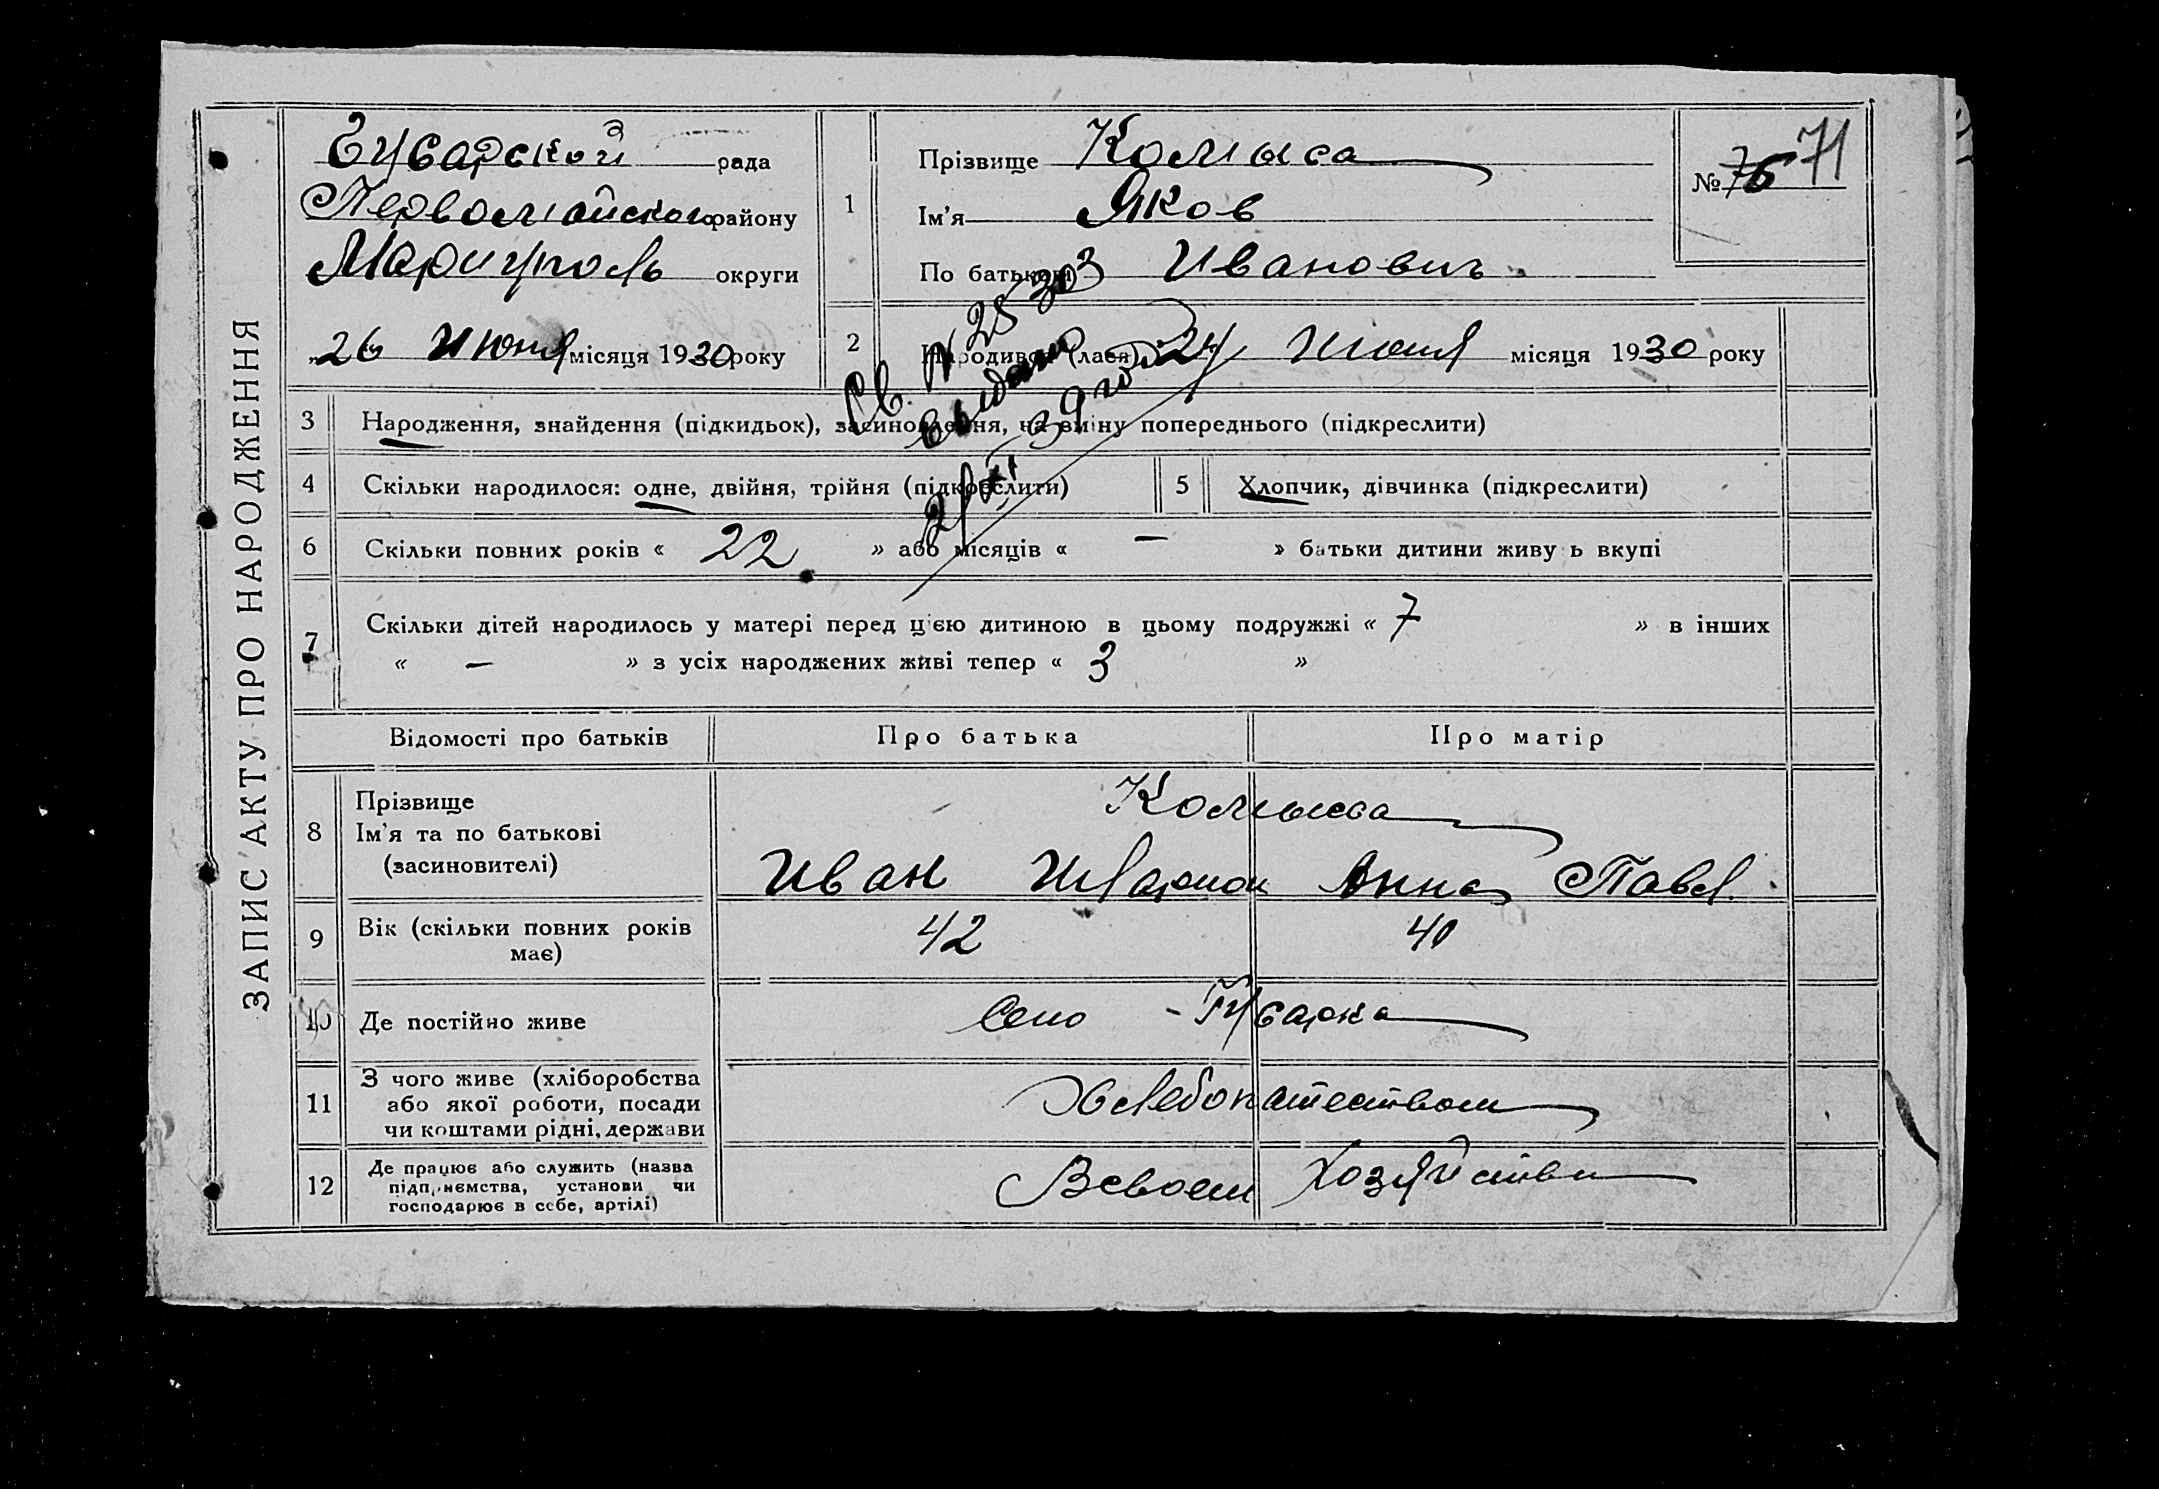 ЗАПИС АКТУ ПРО НАРОДЖЕННЯ
Гусарской рада
Первомайского району
Мариуполь округи
„26 Июня місяця 1930 року
1 Прізвище Комыса
Ім’я Яков
По батькові Иванович
№ 76 71
2 Народився (лася) 24 Июня місяця 1930 року
Св. № 25 303
выдано
2/XI 39 год
3 Народження, знайдення (підкидьок), засиновлення, на зміну попереднього (підкреслити)
4 Скільки народилося: одне, двійня, трійня (підкреслити) 5 Хлопчик, дівчинка (підкреслити)
6 Скільки повних років « 22 » або місяців « — » батьки дитини живуть вкупі
7 Скільки дітей народилось у матері перед цією дитиною в цьому подружжі « 7 » в інших
« — » з усіх народжених живі тепер « 3 »
Відомості про батьків Про батька Про матір
8 Прізвище
Ім’я та по батькові
(засиновителі)
Комыса
Иван Анна Павл.
9 Вік (скільки повних років
має)
42 40
10 Де постійно живе Село - Гусарка
11 З чого живе (хліборобства
або якої роботи, посади
чи коштами рідні, держави
Хлебопашеством
12 Де працює або служить (назва
підприємства, установи чи
господарює в себе, артілі)
Всвоем Хозяйстви